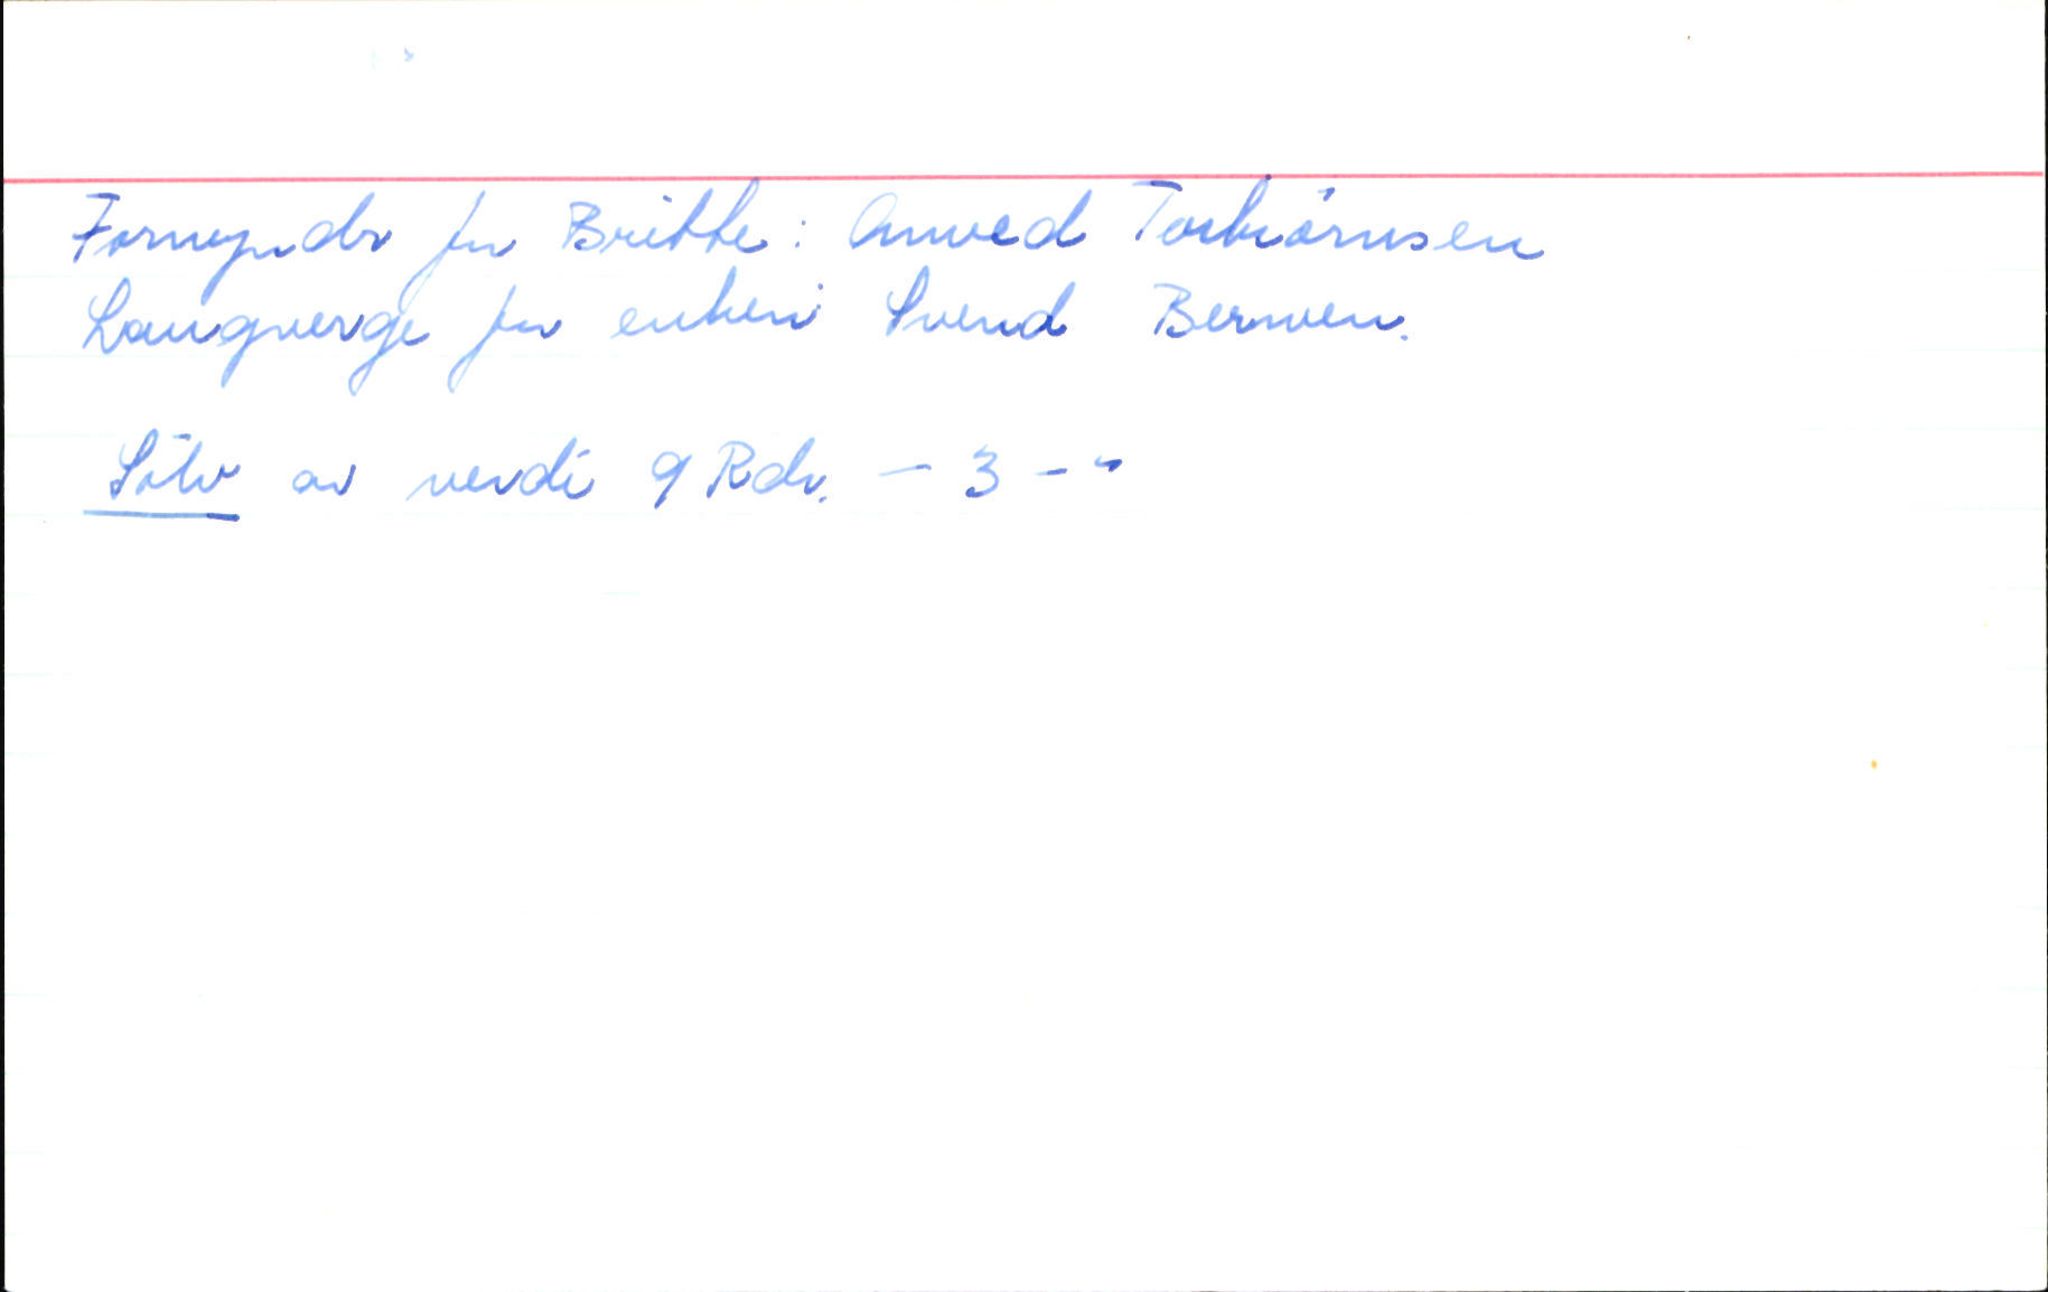 Formynder for Britthe: Anved Torbiörnsen
Laugverge for enken: Svend
Sölv av verdi 9 Rdr. - 3 - "